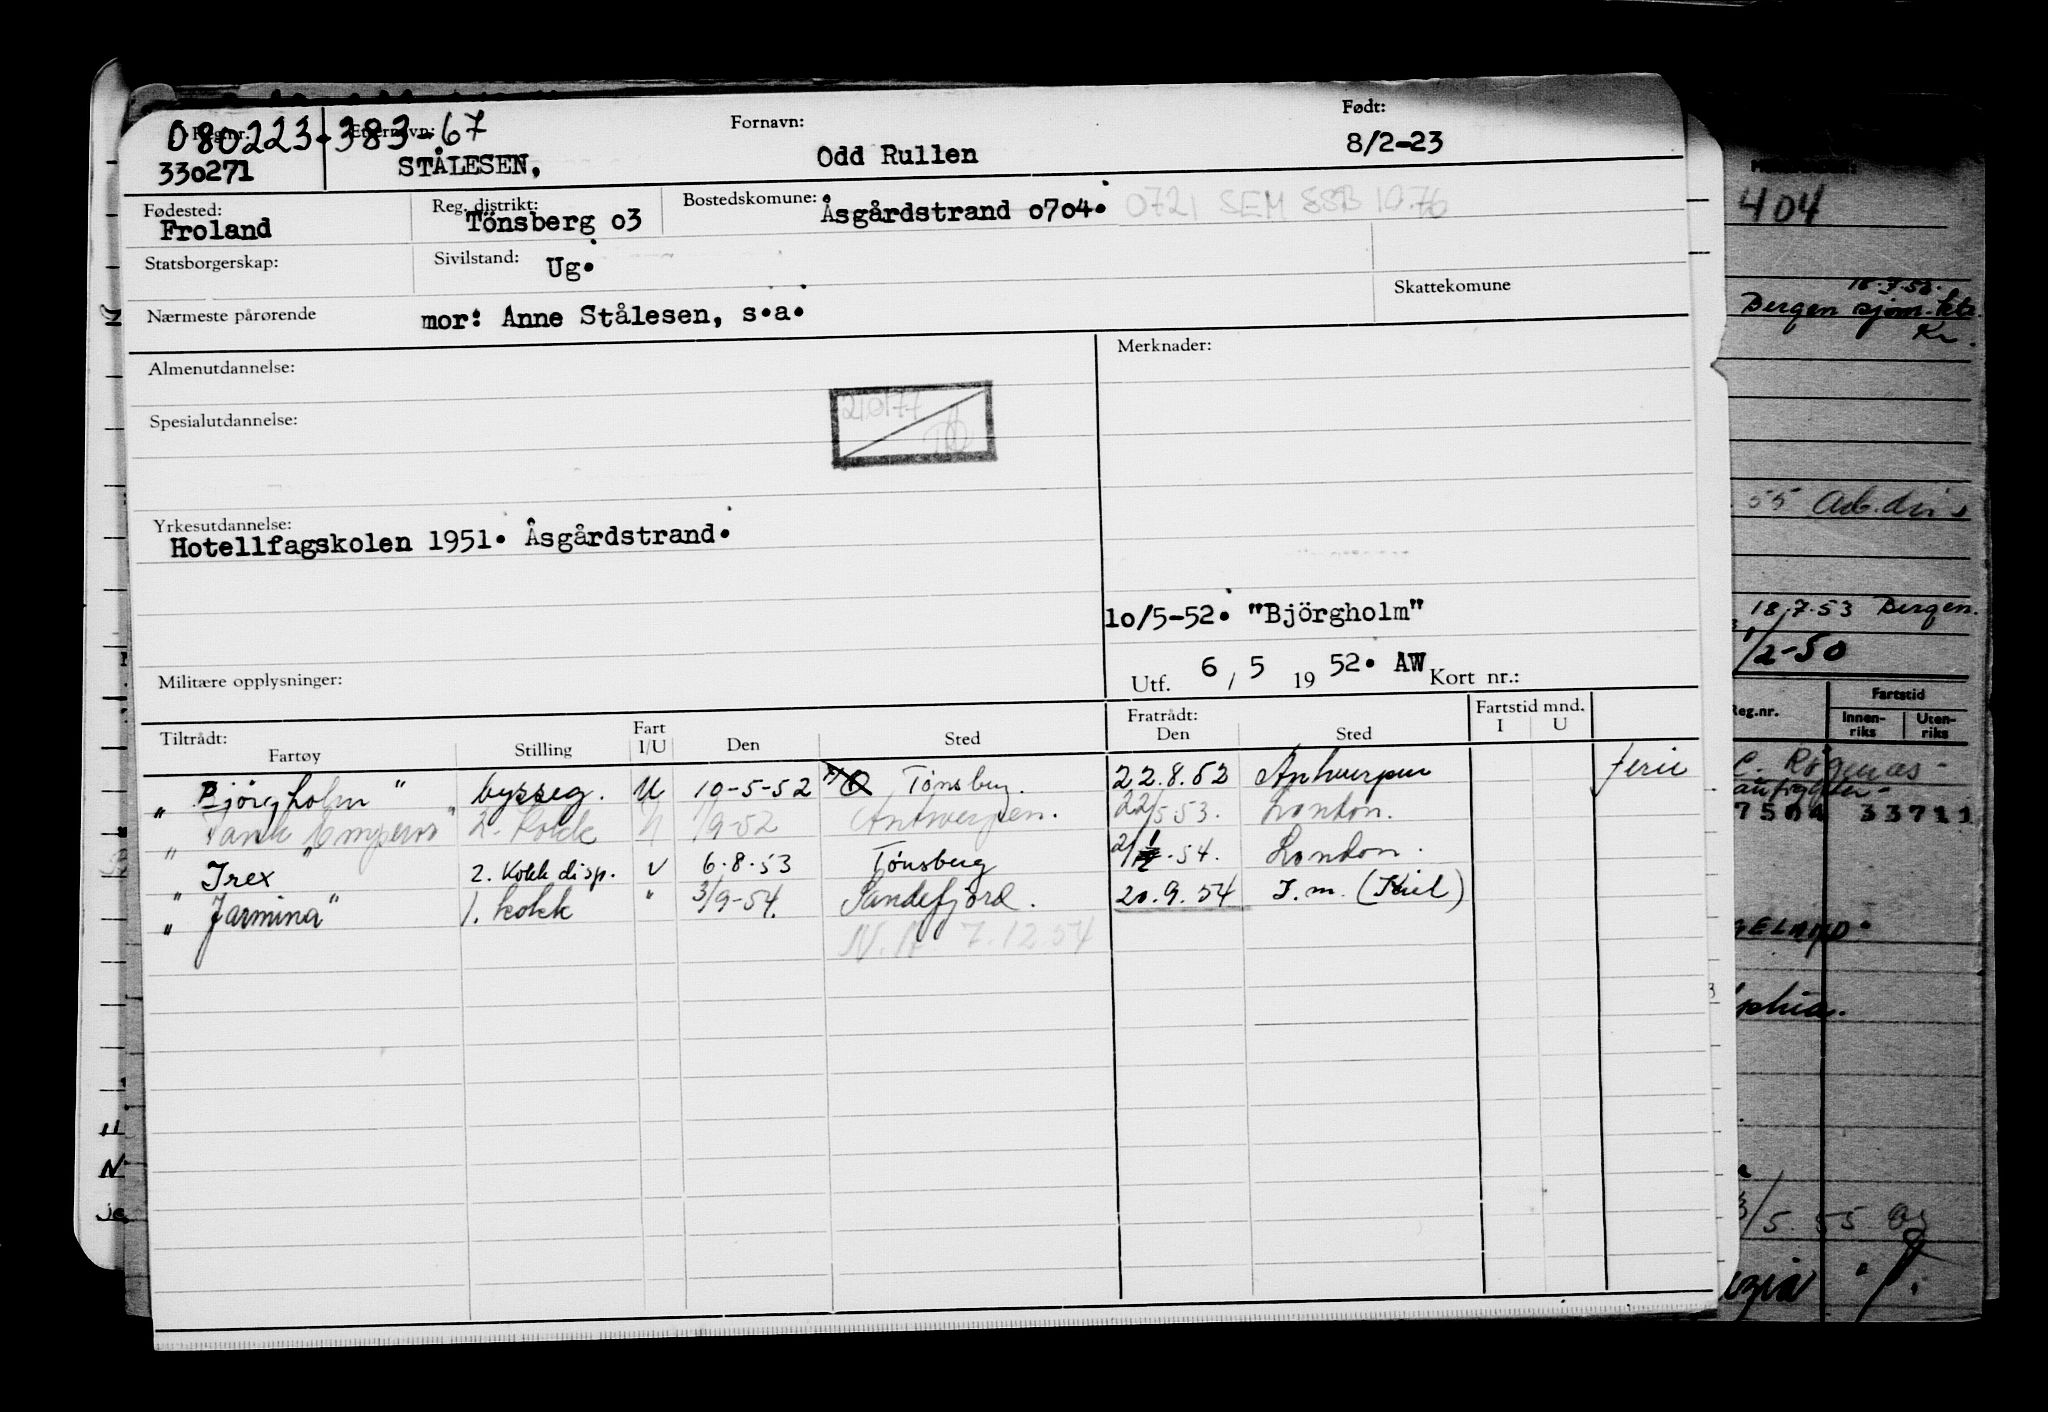 080223-383-67
Regnr. Etternavn: Fornavn: Født:
330271 STÅLESEN, Odd Rullen 8/2-23
Fødested: Reg. distrikt: Bostedskomune:
Froland Tönsberg o3 Åsgårdstrand o7o4. 0721 SEM SSB 10.76
Statsborgerskap: Sivilstand: Ug.
Nærmeste pårørende mor: Anne Stålesen, s.a. Skattekomune
Almenutdannelse: Merknader:
21.0177
Spesialutdannelse:
Yrkesutdannelse:
Hotellfagskolen 1951. Åsgårdstrand.
1o/5-52. "Björgholm"
Militære opplysninger: Utf. 6 / 5 19 52. AW Kort nr.:
Tiltrådt: Fratrådt: Fartstid mnd.
Fartøy Stilling Fart I/U Den Sted Den Sted I U
" Bjørgholm " bysseg. U 10-5-52 Tønsberg. 22.8.52 Antwerpen ferie
" Tank Emperor " 2. Kokk U 1/9-52 Antwerpen. 22/5 53. London.
" Irex " 2. Kokk disp. U 6.8.53 Tønsberg 2/1.54. London.
" Jarmina " 1. kokk " 3/9-54. Sandefjord. 20.9.54 I.m. (Kiel)
N.A 7.12.54
404
Bergen sjøm.ktr.
Kr.
55 Arb.dir
18.7.53 Bergen.
1/2-50
Reg.nr. Fartstid
Innen-riks Uten-riks
33711
GELAND.
phia.
/5.55